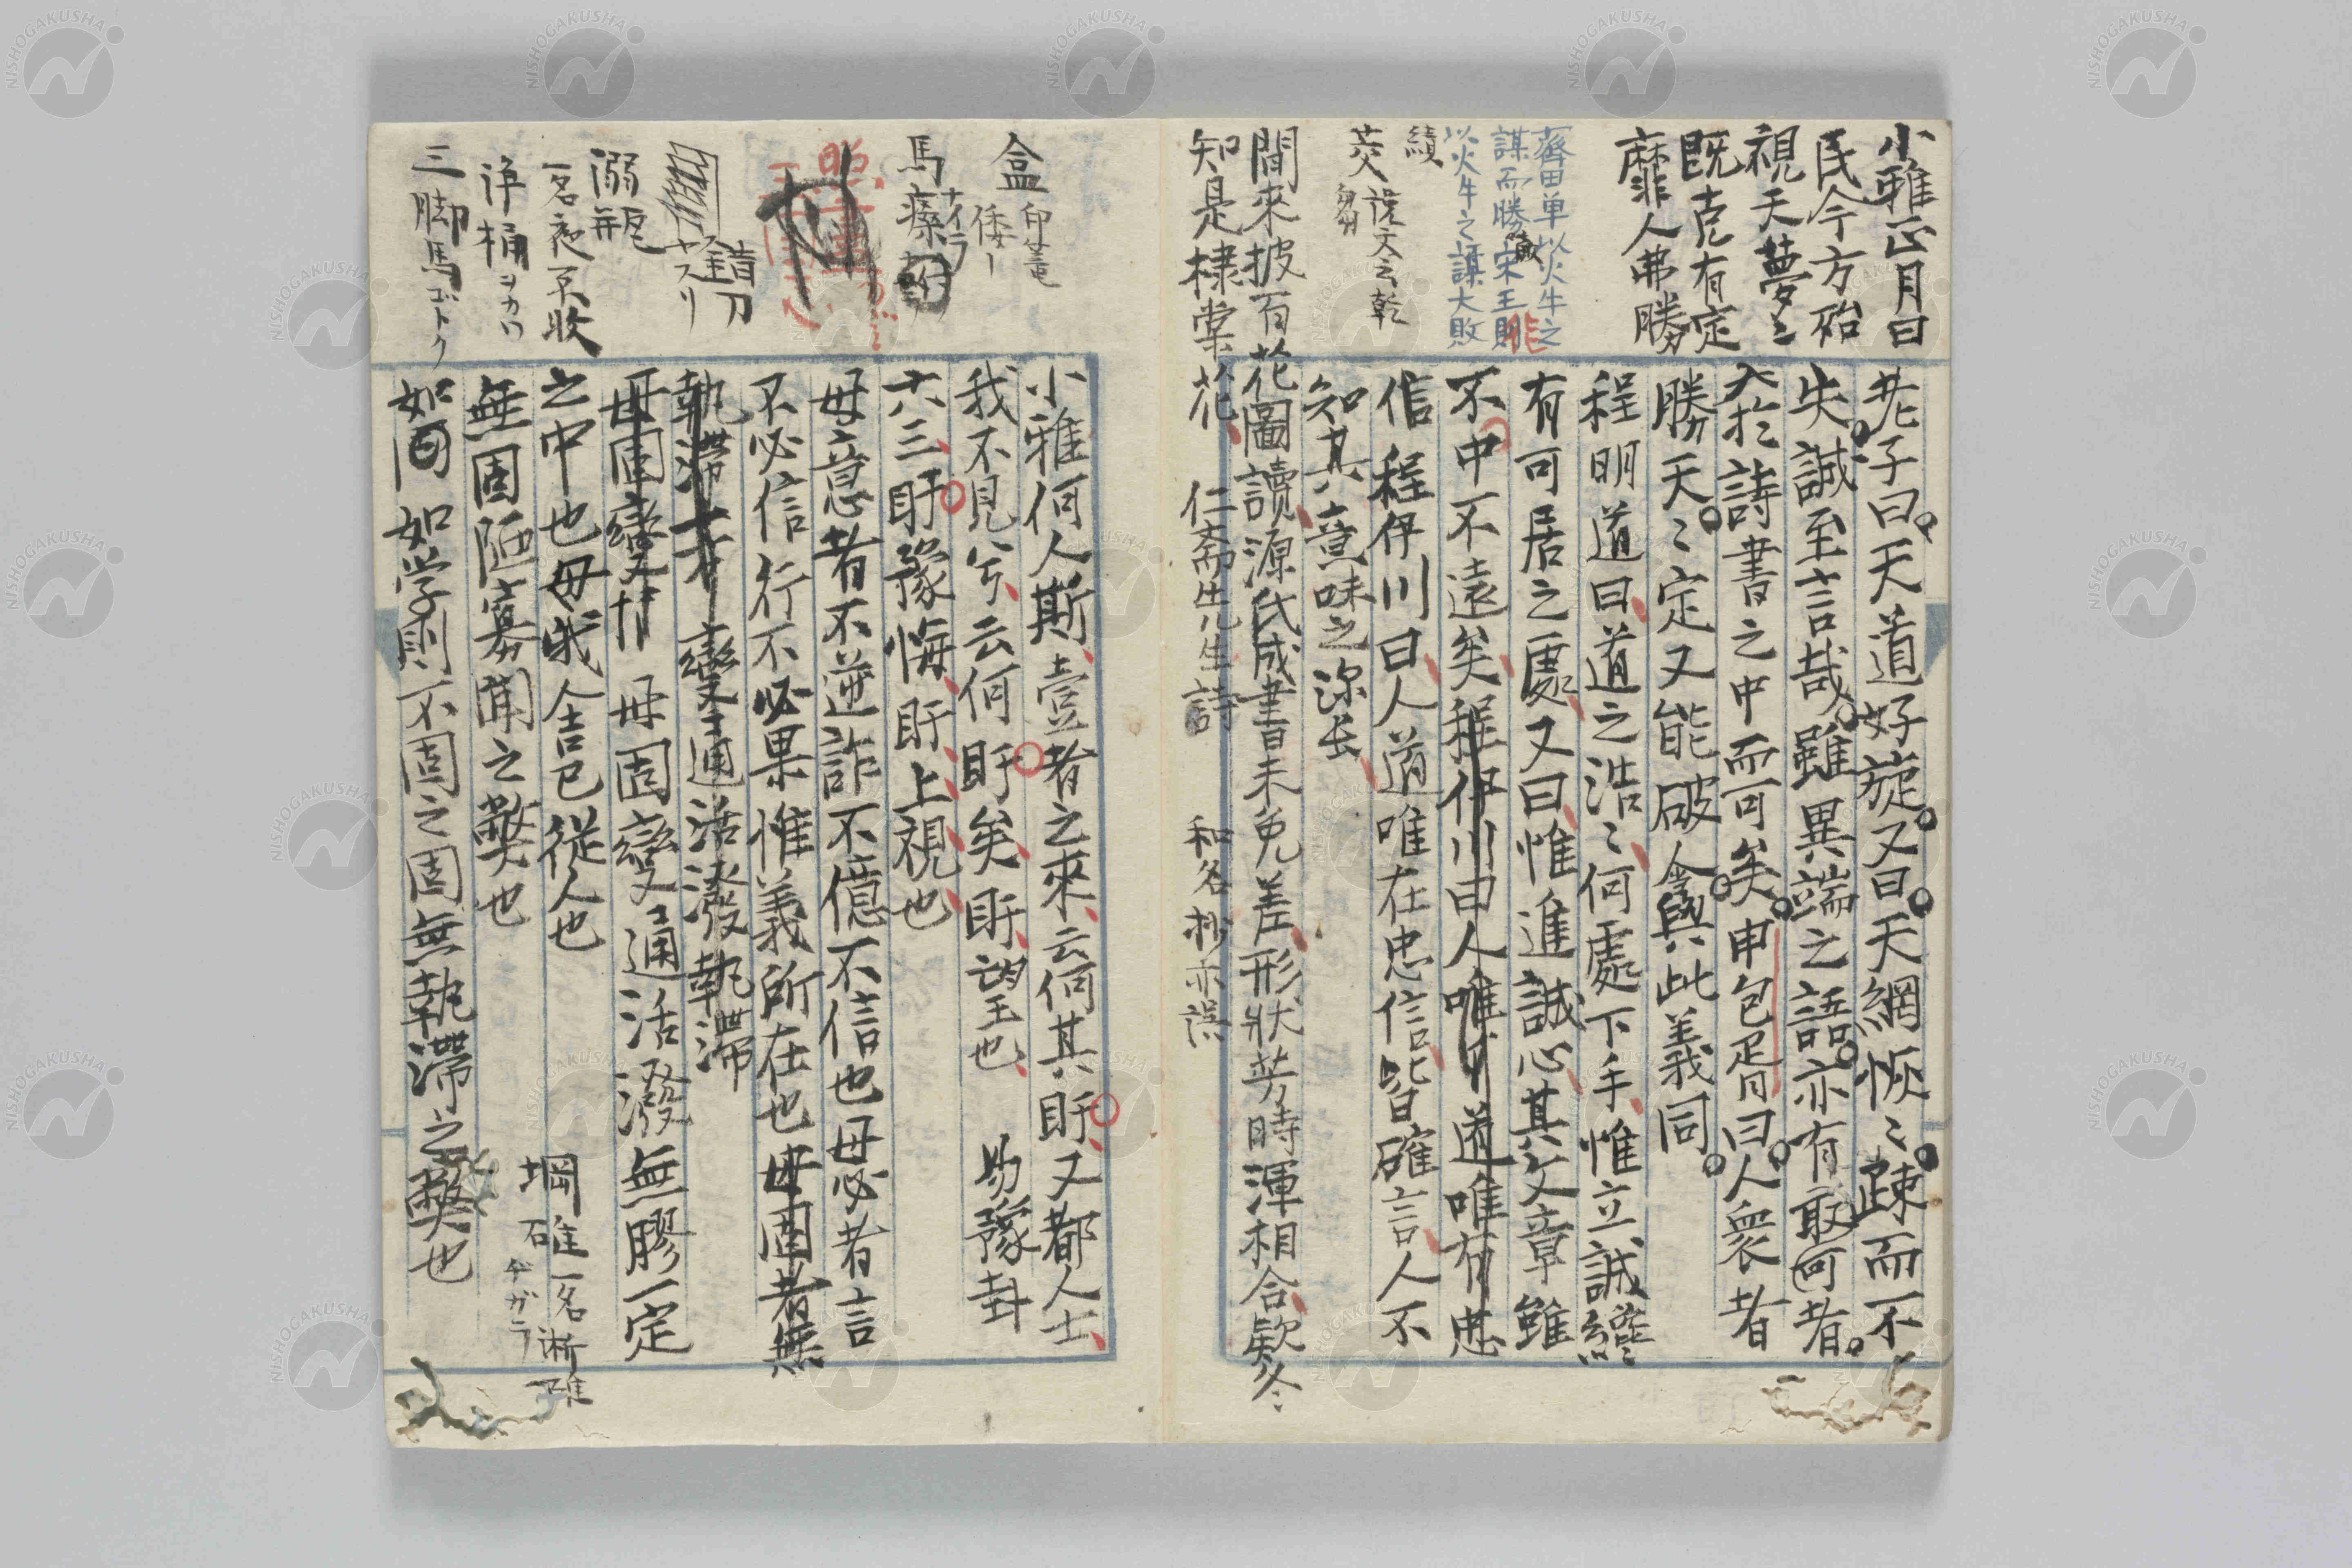 小雅正月曰
民今方殆
視天夢〻
既克有定
靡人弗勝
齊田単以火牛之
謀而勝宋王則
以火牛之謀大敗
績
老子曰天道好旋又曰天網恢〻疎而不
失誠至言哉雖異端之語亦有取可者
於詩書之中而可矣申包胥曰人衆者
勝天〻定又能破人與此義同
程明道曰道之浩〻何處下手惟立誠纔
有可居之處又曰惟進誠心其文章雖
不中不遠矣程伊川曰人唯道唯有忠
信程伊川曰人道唯在忠信皆確言人不
知其意味之深长
間來披百花圖讀源氏成書未免差形状芳時渾相合欵冬
知是棣棠花 仁斎先生詩 和名抄亦誤
盒 印菴
倭
馬瘶
ナイラ
錯刀
ヤスリ
溺瓶
一名夜不收
浄桶ヲカワ
三脚馬ゴトク
小雅何人斯壹者之來云何其盱又都人士
我不見兮云何盱矣盱望也 易豫卦
六三盱豫悔盱上視也
毋意者不逆詐不億不信也毋必者言
不必信行不必果惟義所在也毋固者無
執滞 變通活潑執滞
毋固變 毋固變通活潑無膠一定
之中也毋我舍己従人也
無固陋寡聞之弊也
如固如学則不固之固無執滞之弊也
堈碓一名淅碓
石